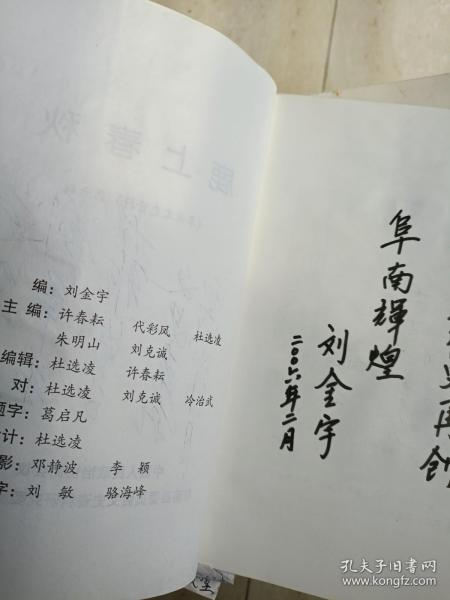 鹿上春秋
编：刘金宇
主编：许春耘 代彩凤 杜选凌
朱明山 刘克诚
编辑：杜选凌 许春耘
对：杜选凌 刘克诚 冷治武
题字：葛启凡
计：杜选凌
影：邓静波 李颖
字：刘敏 骆海峰
再创
阜南辉煌
刘金宇
二〇〇六年二月
孔夫子旧书网
www.kongfz.com